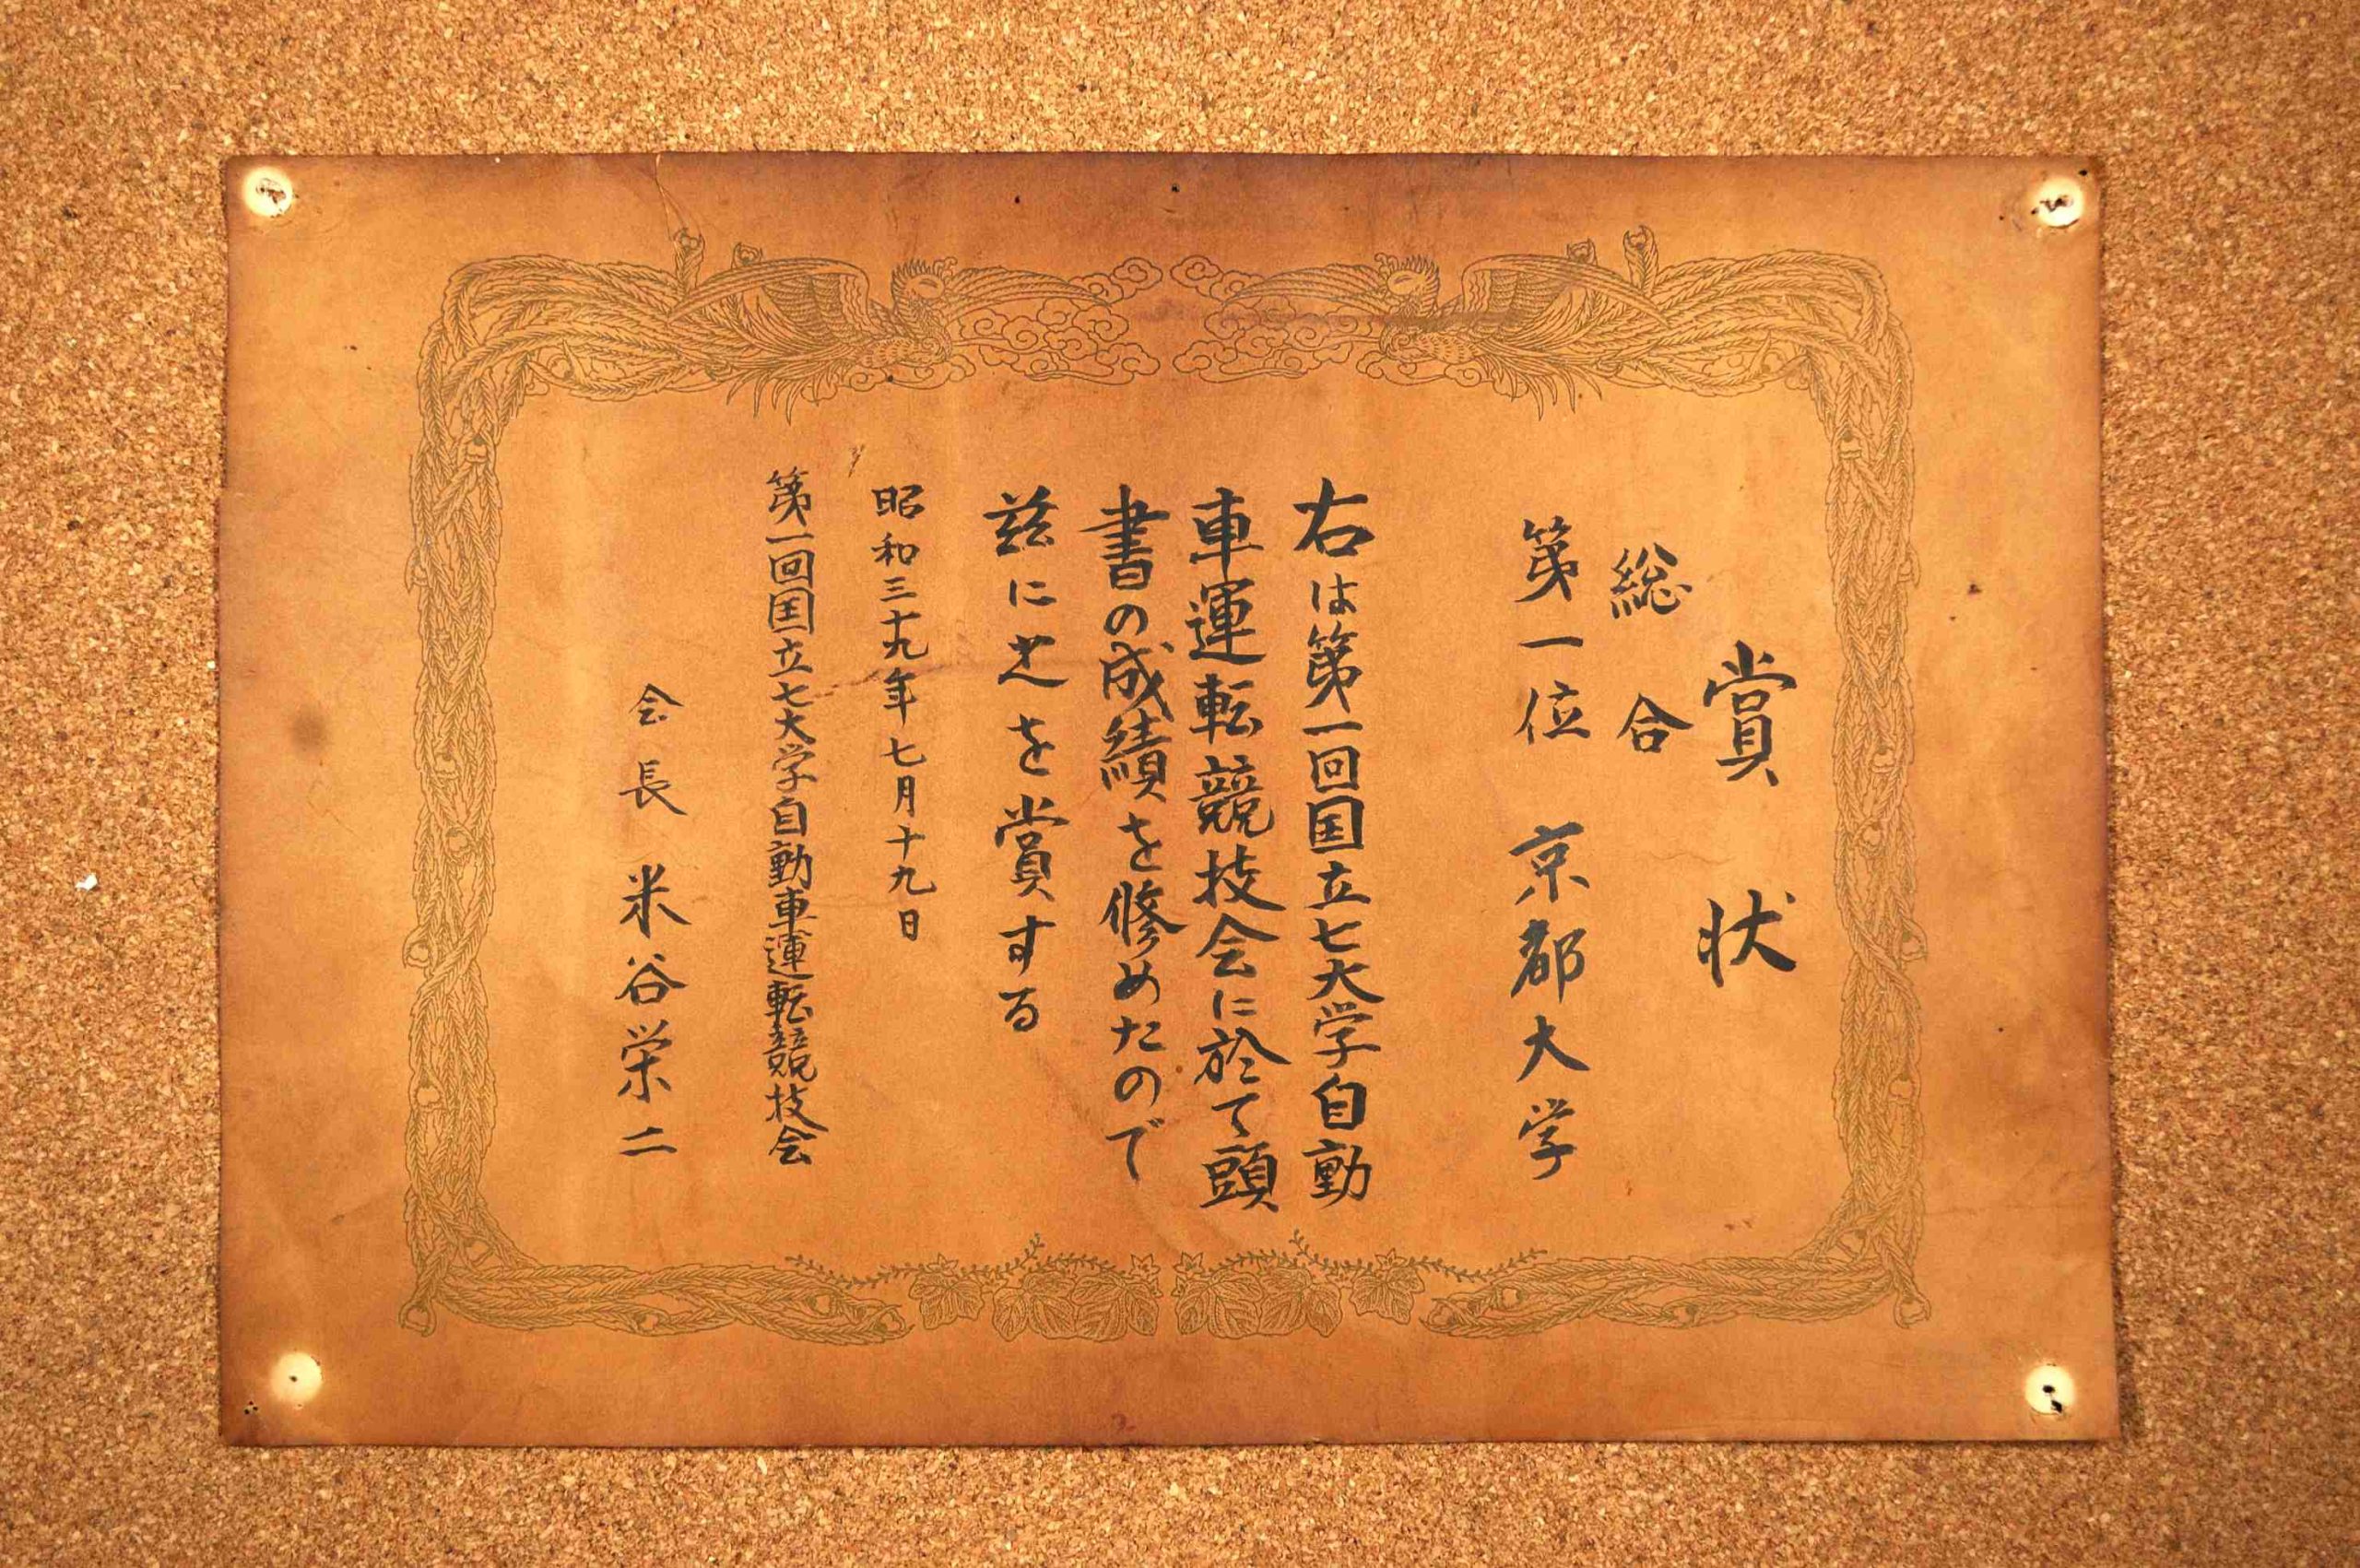 賞状
総合
第一位 京都大学
右は第一回国立七大学自動
車運転競技会に於て頭
書の成績を修めたので
茲に之を賞する
昭和三十九年七月十九日
第一回国立七大学自動車運転競技会
会長 米谷栄二